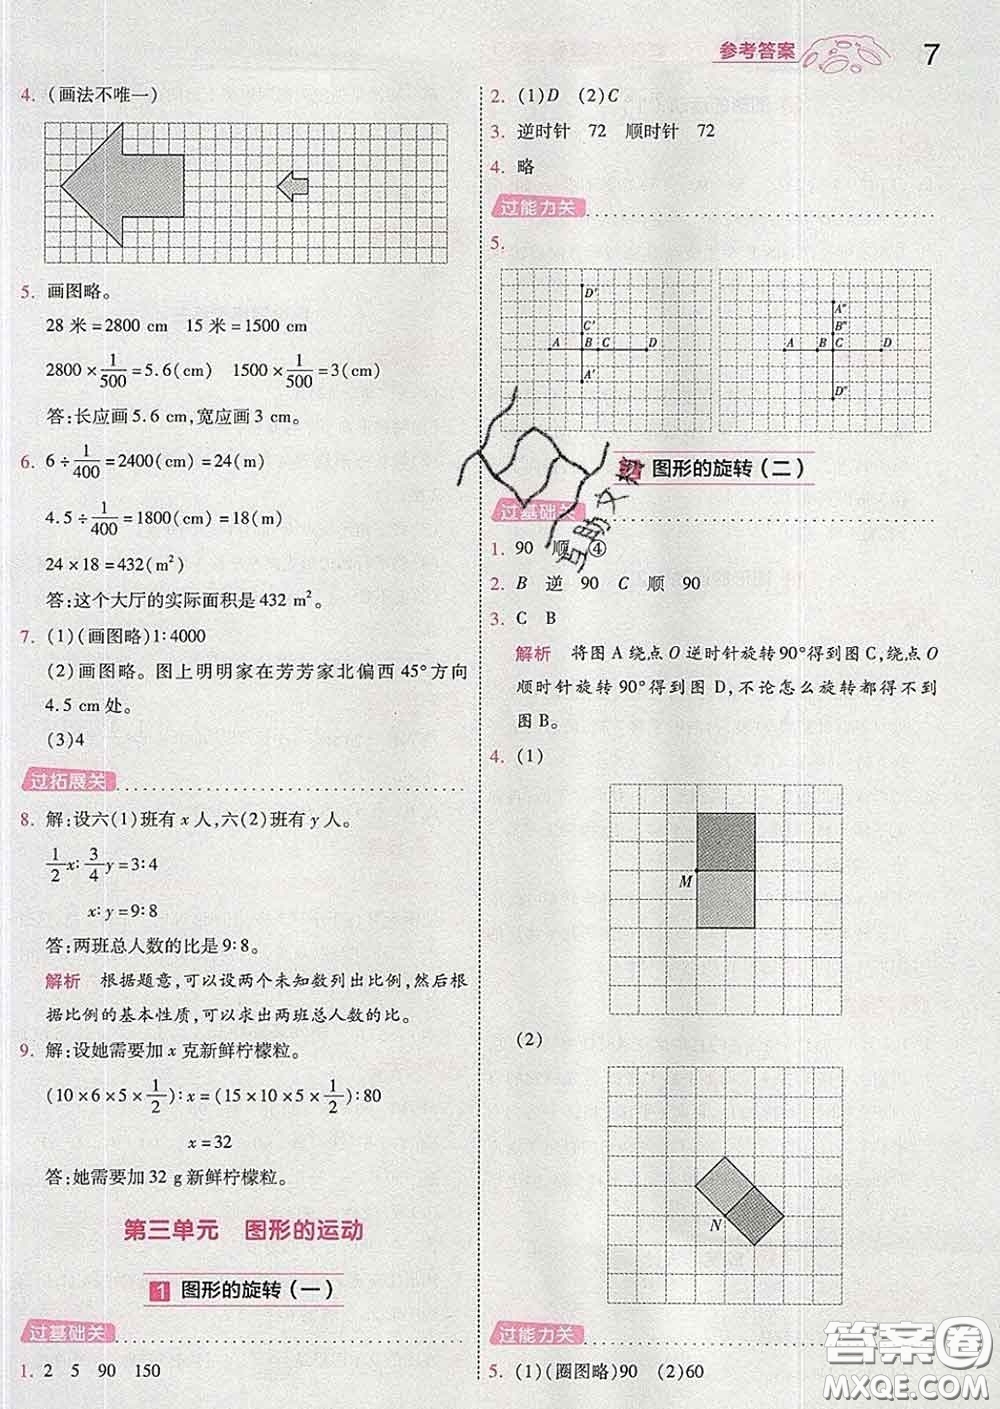 参考答案 7
4. (画法不唯一)
5. 画图略。
28 米 = 2800 cm 15 米 = 1500 cm
2800 × 1/500 = 5.6(cm) 1500 × 1/500 = 3(cm)
答:长应画 5.6 cm,宽应画 3 cm。
6. 6 ÷ 1/400 = 2400(cm) = 24(m)
4.5 ÷ 1/400 = 1800(cm) = 18(m)
24 × 18 = 432(m²)
答:这个大厅的实际面积是 432 m²。
7. (1)(画图略)1∶4000
(2)画图略。图上明明家在芳芳家北偏西 45°方向
4.5 cm 处。
(3)4
过拓展关
8. 解:设六(1)班有 x 人,六(2)班有 y 人。
1/2 x∶3/4 y = 3∶4
x∶y = 9∶8
答:两班总人数的比是 9∶8。
解析 根据题意,可以设两个未知数列出比例,然后根
据比例的基本性质,可以求出两班总人数的比。
9. 解:设她需要加 x 克新鲜柠檬粒。
(10×6×5×1/2)∶x = (15×10×5×1/2)∶80
x = 32
答:她需要加 32 g 新鲜柠檬粒。
第三单元 图形的运动
1 图形的旋转(一)
过基础关
1. 2 5 90 150
2. (1)D (2)C
3. 逆时针 72 顺时针 72
4. 略
过能力关
5.
D′
C′
A B C D
A′
A″
B″
A B C D
D″
图形的旋转(二)
过基础关
1. 90 顺 ④
2. B 逆 90 C 顺 90
3. C B
解析 将图 A 绕点 O 逆时针旋转 90°得到图 C,绕点 O
顺时针旋转 90°得到图 D,不论怎么旋转都得不到
图 B。
4. (1)
M
(2)
N
过能力关
5. (1)(圈图略)90 (2)60
互助文档
答案圈
MXQE.COM